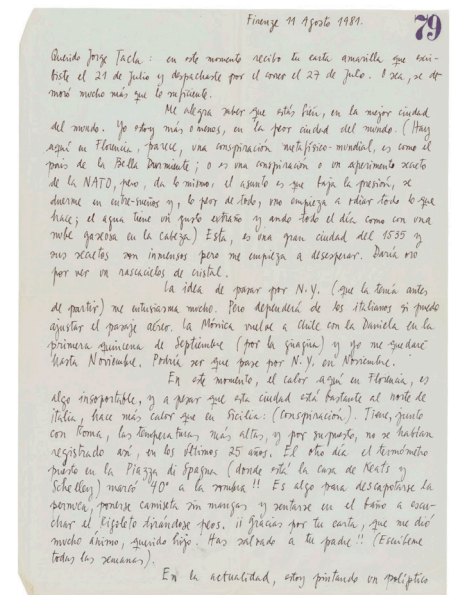 79
Firenze 11 Agosto 1981.
Querido Jorge Tacla: en este momento recibo tu carta amarilla que escri-
biste el 21 de Julio y despachaste por el correr el 27 de Julo. O sea, se de-
moró mucho más que lo suficiente.
Me alegra saber que estás bién, en la mejor ciudad
del mundo. Yo estoy más o menos, en la peor ciudad del mundo. (Hay
aquí en Florencia, parece, una conspiración metafísico-mundial, es como el
país de la Bella Durmiente; o es una conspiración o un experimento secreto
de la NATO, pero, da lo mismo, el asunto es que baja la presión, se
duerme en entre-sueños y, lo peor de todo, uno empieza a odiar todo lo que
hace; el agua tiene un gusto extraño y ando todo el día como con una
nube gaseosa en la cabeza) Esta, es una gran ciudad del 1535 y
sus secretos son inmensos pero me empieza a desesperar. Daría oro
por ver un rascacielos de cristal.
La idea de pasar por N.Y. (que la tenía antes
de partir) me entusiasma mucho. Pero dependerá de los italianos si puedo
ajustar el pasaje aéreo. La Mónica vuelve a Chile con la Daniela en la
primera quincena de Septiembre (por la guagua) y yo me quedaré
hasta Noviembre. Podría ser que pase por N.Y. en Noviembre.
En este momento, el calor aquí en Florencia, es
algo insoportable, y a pesar que esta ciudad está bastante al norte de
italia, hace más calor que en Sicilia: (conspiración). Tiene, junto
con Roma, las temperaturas más altas, y por supuesto, no se habían
registrado así, en los últimos 25 años. El otro día el termómetro
puesto en la Piazza di Spagna (donde está la casa de Keats y
Schelley) marcó 40° a la sombra!! Es algo para descapotarse la
permuca, ponerse camiseta sin mangas y sentarse en el baño a escu-
char el Rigoleto tirándose peos. ¡¡Gracias por tu carta, que me dió
mucho ánimo, querido hijo. Has salvado a tu padre!! (Escríbeme
todas las semanas).
En la actualidad, estoy pintando un políptico